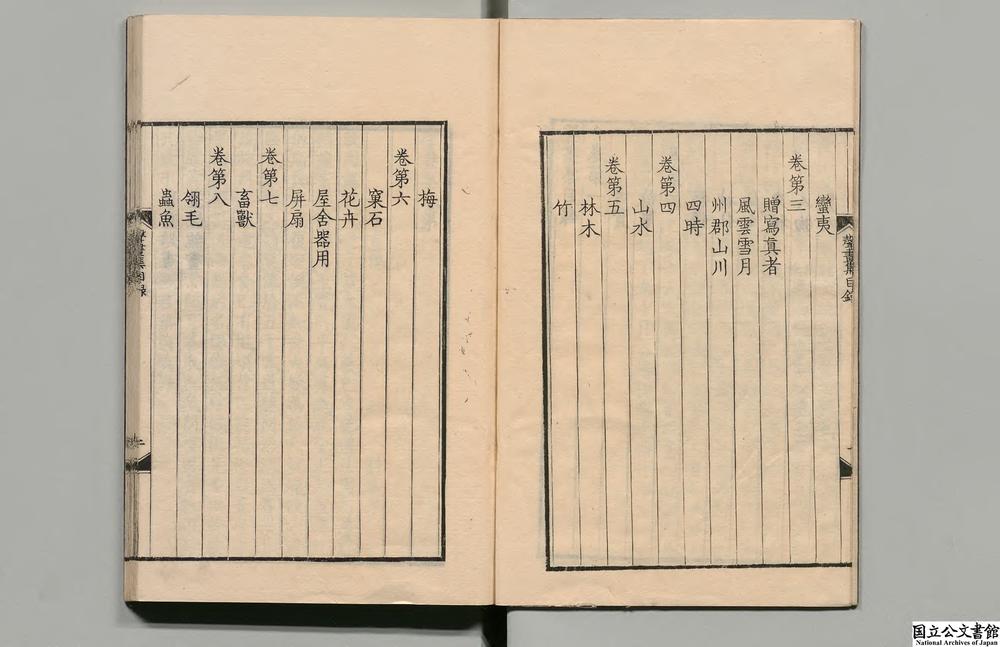 蠻夷
卷第三
贈寫真者
風雲雪月
州郡山川
四時
卷第四
山水
卷第五
林木
竹
梅
卷第六
窠石
花卉
屋舍器用
屏扇
卷第七
畜獸
卷第八
翎毛
蟲魚
聲畫集目錄
二
国立公文書館
National Archives of Japan